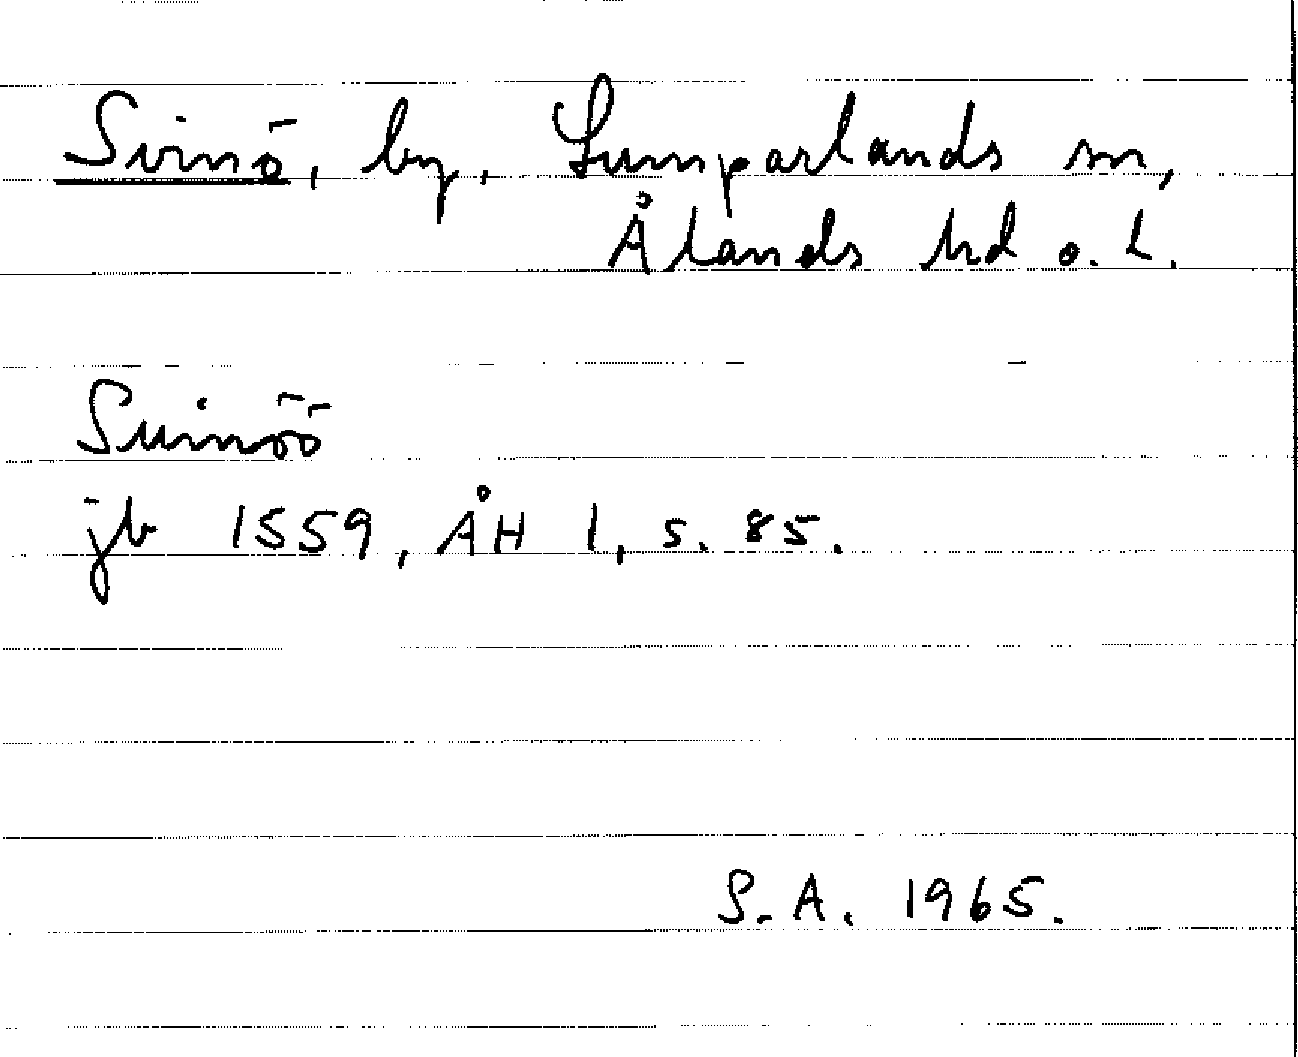 Svinö, by, Lumparlands sn,
Ålands hd o. L.
Suinöö
jb 1559, ÅH 1, s. 85.
S. A. 1965.